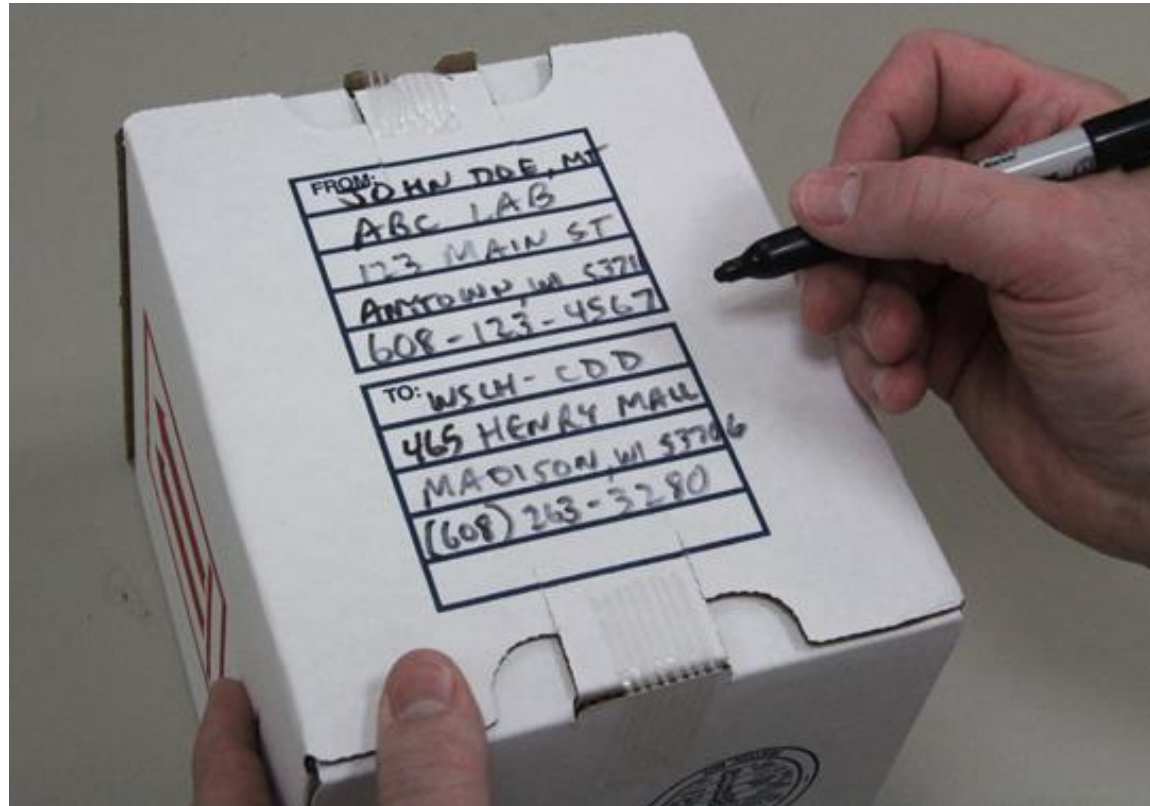 FROM: JOHN DOE, MT
ABC LAB
123 MAIN ST
ANYTOWN, WI 5371
608-123-4567
TO: WSLH - CDD
465 HENRY MALL
MADISON, WI 53706
(608) 263-3280